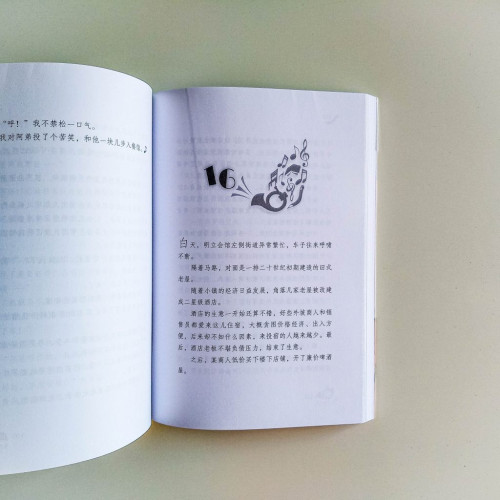 “呼！”我不禁松一口气。
我对阿弟投了个苦笑，和他一块儿步入酒馆。
16
白天，明立会馆左侧街道异常繁忙，车子往来呼啸
不断。
隔着马路，对面是一排二十世纪初期建造的旧式
老屋。
随着小镇的经济日益发展，角落几家老屋被改建
成二星级酒店。
酒店的生意一开始还算不错，好些外坡商人和推
售员都爱来这儿住宿，大概贪图价格经济、出入方
便。后来却不知什么因素，来投宿的人越来越少。最
后，酒店老板不堪负债压力，结束了生意。
之后，某商人低价买下楼下店铺，开了廉价啤酒
屋。